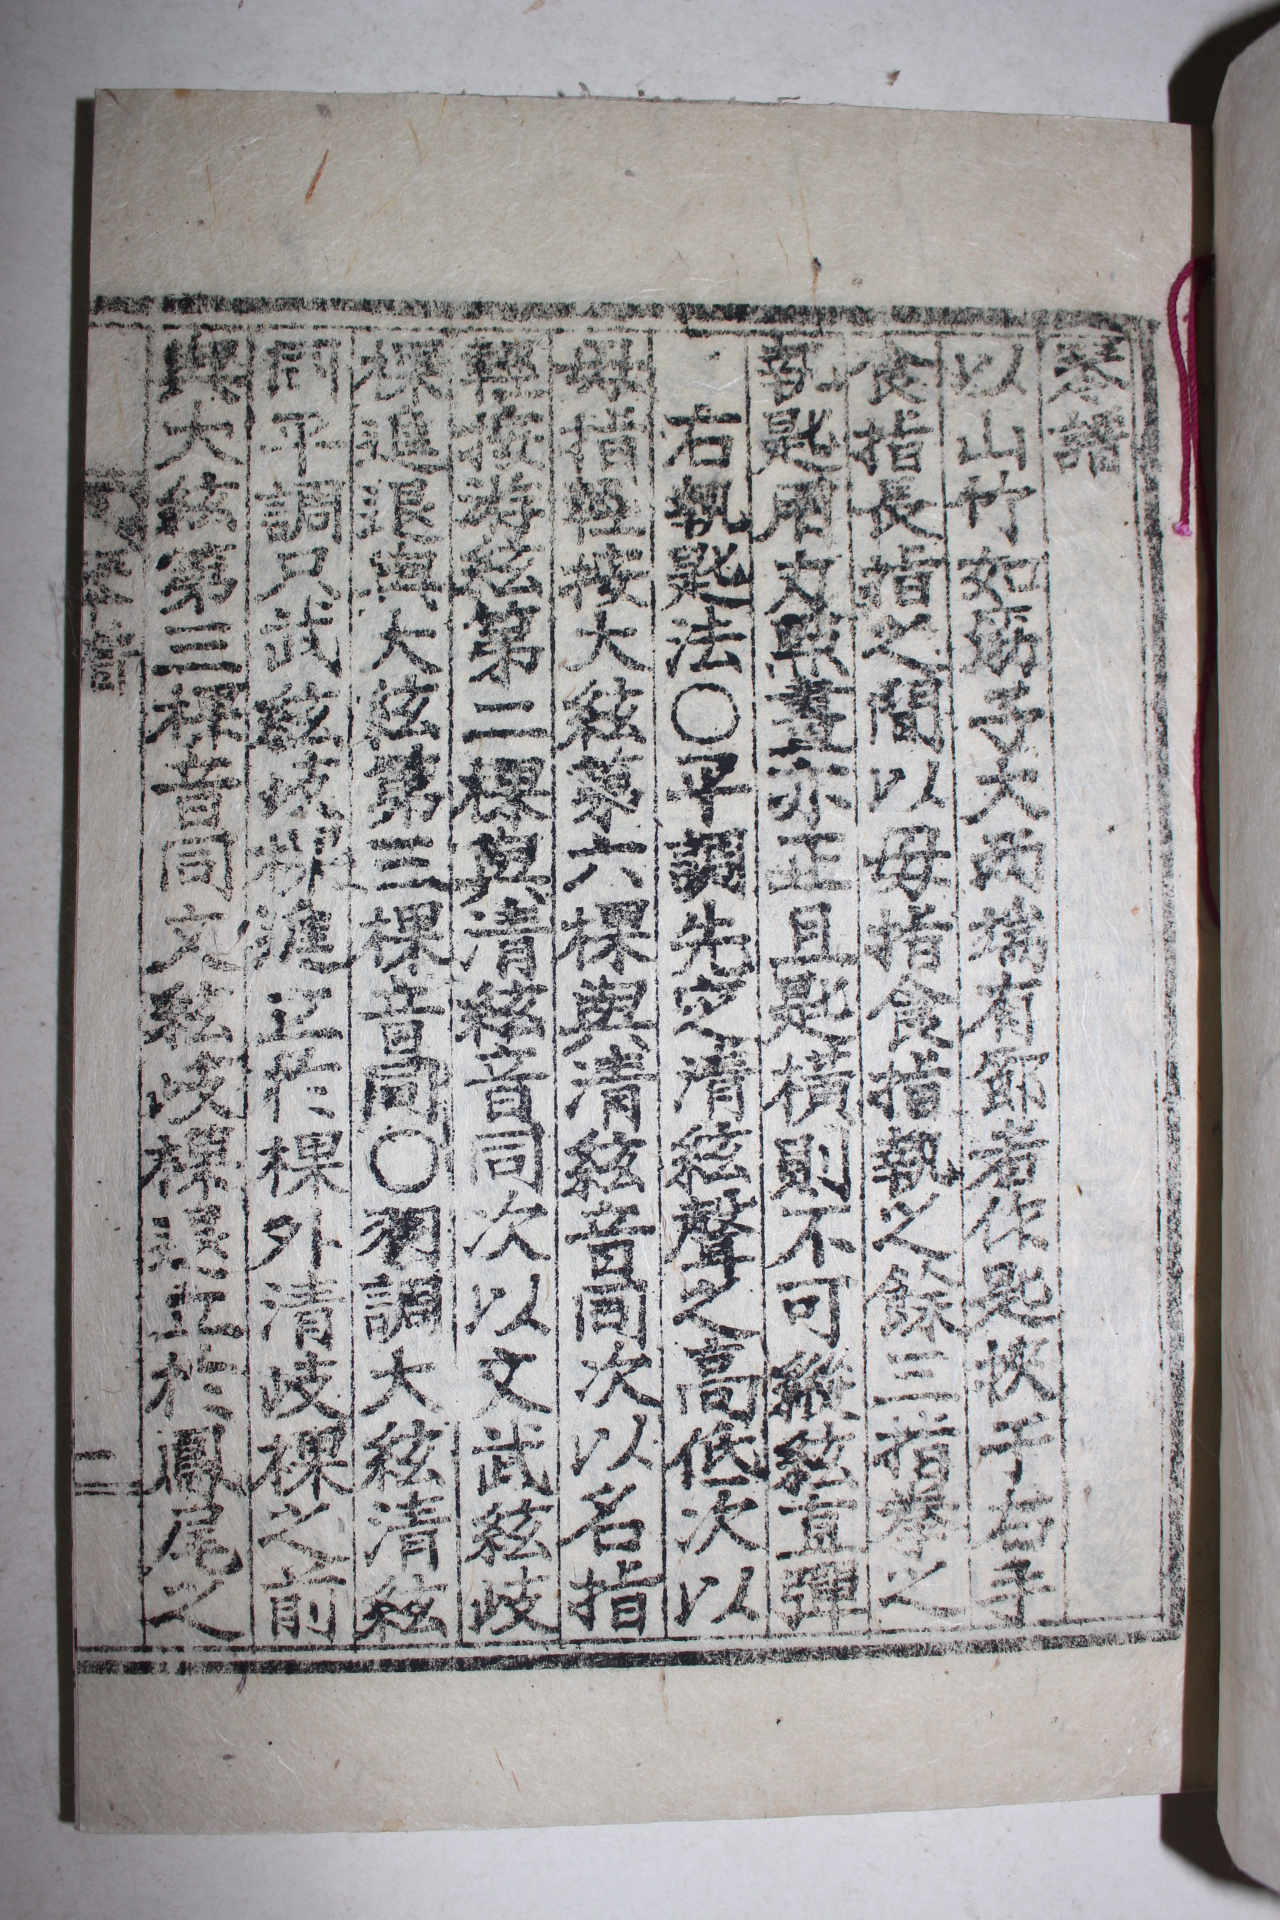 琴譜
以山竹如筯子大而端有節者作匙挾于右手
食指長指之間以毋指食指執之餘三指拳之
執匙用力照畫亦正且匙橫則不可縱絃直彈
右執匙法〇平調先定清絃聲之高低次以
毋指輕按大絃第六棵與清絃音同次以名指
輕按游絃第二棵與清絃音同次以文武絃歧
棵進退與大絃第三棵音同〇羽調大絃清絃
同平調只武絃歧棵進立扵棵外清歧棵之前
與大絃第三棵音同文絃歧棵退立扵鳳尾之
琴譜
二